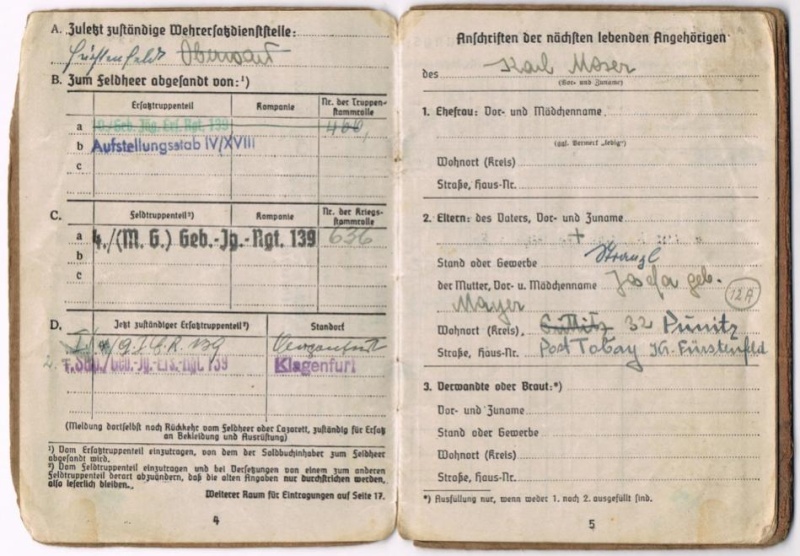 A. Zuletzt zuständige Wehrersatzdienststelle:
Fürstenfeld Oberwart
B. Zum Feldheer abgesandt von:¹)
Ersatztruppenteil Kompanie Nr. der Truppen-
stammrolle
a 10./Geb. Jäg. Ers. Rgt. 139 466,
b Aufstellungsstab IV/XVIII
c
C. Feldtruppenteil²) Kompanie Nr. der Kriegs-
stammrolle
a 4./(M. G.) Geb.-Jg.-Rgt. 139 636
b
c
D. Jetzt zuständiger Ersatztruppenteil²) Standort
139
2. Geb.-Jg.-Ers.-Rgt. 139 Klagenfurt
(Meldung dortselbst nach Rückkehr vom Feldheer oder Lazarett, zuständig für Ersatz
an Bekleidung und Ausrüstung)
¹) Vom Ersatztruppenteil einzutragen, von dem der Soldbuchinhaber zum Feldheer
abgesandt wird.
²) Vom Feldtruppenteil einzutragen und bei Versetzungen von einem zum anderen
Feldtruppenteil derart abzuändern, daß die alten Angaben nur durchstrichen werden,
also leserlich bleiben.
Weiterer Raum für Eintragungen auf Seite 17.
4
Anschriften der nächsten lebenden Angehörigen
des Karl Moser
(Vor- und Zuname)
1. Ehefrau: Vor- und Mädchenname
(ggf. Vermerk „ledig")
Wohnort (Kreis)
Straße, Haus-Nr.
2. Eltern: des Vaters, Vor- und Zuname
+
Stand oder Gewerbe
der Mutter, Vor- u. Mädchenname Josefa geb.
Mayer 12A
Wohnort (Kreis) 32 Punitz
Straße, Haus-Nr. Post Tobay Kr. Fürstenfeld
3. Verwandte oder Braut:*)
Vor- und Zuname
Stand oder Gewerbe
Wohnort (Kreis)
Straße, Haus-Nr.
*) Ausfüllung nur, wenn weder 1. noch 2. ausgefüllt sind.
5